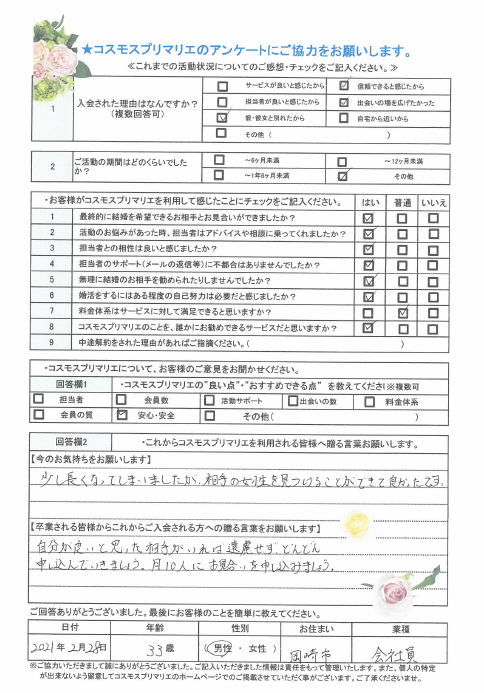 ★コスモスプリマリエのアンケートにご協力をお願いします。
≪これまでの活動状況についてのご感想・チェックをご記入ください。≫
1 入会された理由はなんですか？（複数回答可）
☐ サービスが良いと感じたから ☑ 信頼できると感じたから
☐ 担当者が良いと感じたから ☑ 出会いの場を広げたかった
☑ 彼・彼女と別れたから ☐ 自宅から近いから
☐ その他（ ）
2 ご活動の期間はどのくらいでしたか？
☐ ～6ヶ月未満 ☐ ～12ヶ月未満
☐ ～1年6ヶ月未満 ☑ その他
・お客様がコスモスプリマリエを利用して感じたことにチェックをご記入ください。 はい 普通 いいえ
1 最終的に結婚を希望できるお相手とお見合いができましたか？ ☑ ☐ ☐
2 活動のお悩みがあった時、担当者はアドバイスや相談に乗ってくれましたか？ ☑ ☐ ☐
3 担当者との相性は良いと感じましたか？ ☑ ☐ ☐
4 担当者のサポート（メールの返信等）に不都合はありませんでしたか？ ☑ ☐ ☐
5 無理に結婚のお相手を勧められたりしませんでしたか？ ☑ ☐ ☐
6 婚活をするにはある程度の自己努力は必要だと感じましたか？ ☑ ☐ ☐
7 料金体系はサービスに対して満足できると思いますか？ ☐ ☑ ☐
8 コスモスプリマリエのことを、誰かにお勧めできるサービスだと思いますか？ ☑ ☐ ☐
9 中途解約をされた理由があればご指摘ください。（ ）
・コスモスプリマリエについて、お客様のご意見をお聞かせください。
回答欄1 ・コスモスプリマリエの"良い点"・"おすすめできる点" を教えてください※複数可
☐ 担当者 ☐ 会員数 ☐ 活動サポート ☐ 出会いの数 ☐ 料金体系
☐ 会員の質 ☑ 安心・安全 ☐ その他（ ）
回答欄2 ・これからコスモスプリマリエを利用される皆様へ贈る言葉お願いします。
【今のお気持ちをお願いします】
少し長くなってしまいましたが、相手の女性を見つけることができて良かったです。
【卒業される皆様からこれからご入会される方への贈る言葉をお願いします】
自分が良いと思った相手がいれば遠慮せず、どんどん
申し込んでいきましょう。月10人にお見合いを申し込みましょう。
ご回答ありがとうございました。最後にお客様のことを簡単に教えてください。
日付 年齢 性別 お住まい 業種
2021年2月28日 33歳 男性・女性） 岡崎市 会社員
※ご協力いただきまして誠にありがとうございました。ご記入いただきました情報は責任をもって管理いたします。また、個人の特定
が出来ないよう留意してコスモスプリマリエのホームページでのご掲載させていただく事がございます。ご了承くださいませ。